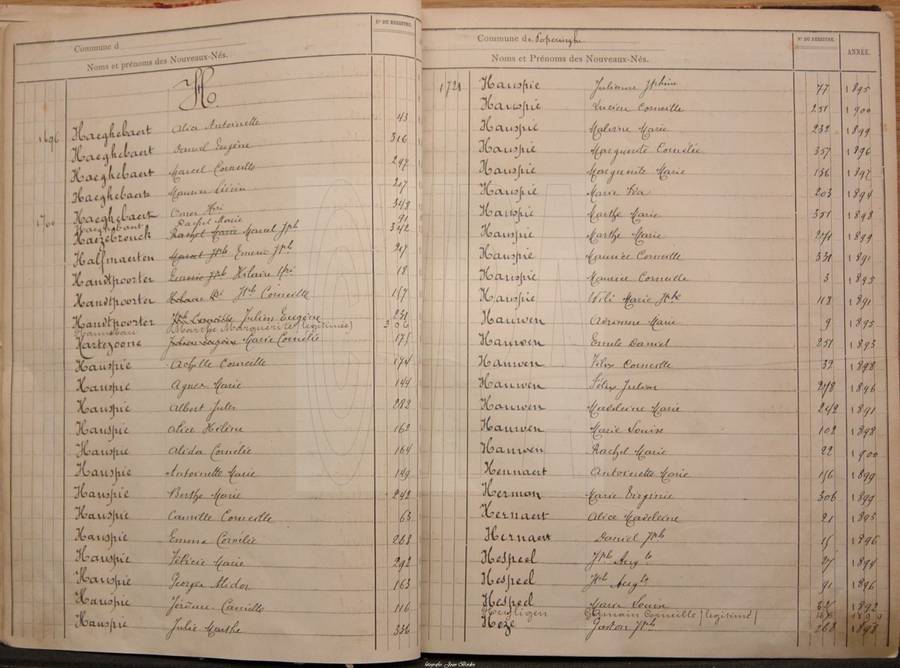 Commune d
N° DU REGISTRE.
Noms et prénoms des Nouveaux-Nés.
H.
Haeghebaert Alice Antoinette 43
1696 Haeghebaert Daniel Eugène 316
Haeghebaert Marcel Corneille 297
Haeghebaert Maurice 207
Haeghebaert Omer Hri 348
1700 Haeghebaert Rachel Marie 91
Haezebrouck Marcel Jph 342
Halfmaerten Emeric Jph 27
Handtpoorter Hilaire Hri 18
Handtpoorter Jph Corneille 157
Handtpoorter Julien Eugène 231
Marthe Marguerite (légitimée) 206
Hartezoone Marie Cornélie 175
Hauspie Achille Corneille 174
Hauspie Agnes Marie 144
Hauspie Albert Jules 282
Hauspie Alice Hélène 162
Hauspie Alida Cornélie 164
Hauspie Antoinette Marie 149
Hauspie Berthe Marie 242
Hauspie Camille Corneille 63
Hauspie Emma Cornélie 268
Hauspie Félicie Marie 292
Hauspie Georges Médor 163
Hauspie Jérôme Camille 116
Hauspie Julie Marthe 336
Commune de Poperinghe
N° DU REGISTRE.
ANNÉE.
Noms et Prénoms des Nouveaux-Nés.
1721 Hauspie Julienne Jphine 77 1895
Hauspie Lucien Corneille 251 1900
Hauspie Malvine Marie 232 1899
Hauspie Marguerite Cornélie 357 1896
Hauspie Marguerite Marie 136 1897
Hauspie Marie Eva 203 1894
Hauspie Marthe Marie 351 1898
Hauspie Marthe Marie 271 1899
Hauspie Maurice Corneille 331 1891
Hauspie Maurice Corneille 3 1895
Hauspie Marie Jph 118 1891
Hauwen Adrienne Marie 9 1895
Hauwen Emile Daniel 251 1893
Hauwen Félix Corneille 39 1898
Hauwen Félix Julien 278 1896
Hauwen Madeleine Marie 242 1891
Hauwen Marie Louise 102 1898
Hauwen Rachel Marie 22 1900
Hennaert Antoinette Marie 156 1899
Herman Marie Virginie 306 1899
Hernaert Alice Madeleine 21 1895
Hernaert Daniel Jph 15 1896
Hespeel Jph Augte 27 1894
Hespeel Jph Augte 91 1896
Hespeel Marie Louise 62 1892
Germain Corneille (légitimé)
Heze Gaston Jph 268 1893